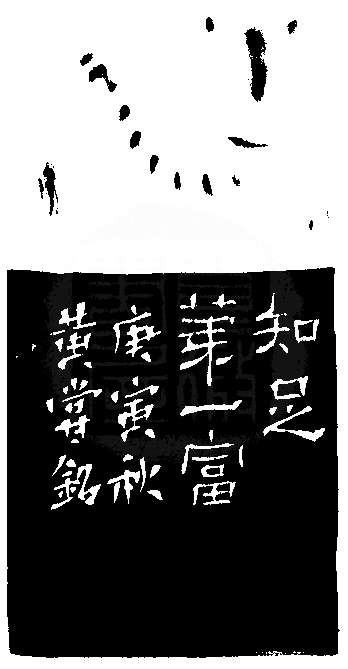 知足
第一富
庚寅秋
黃嘗銘